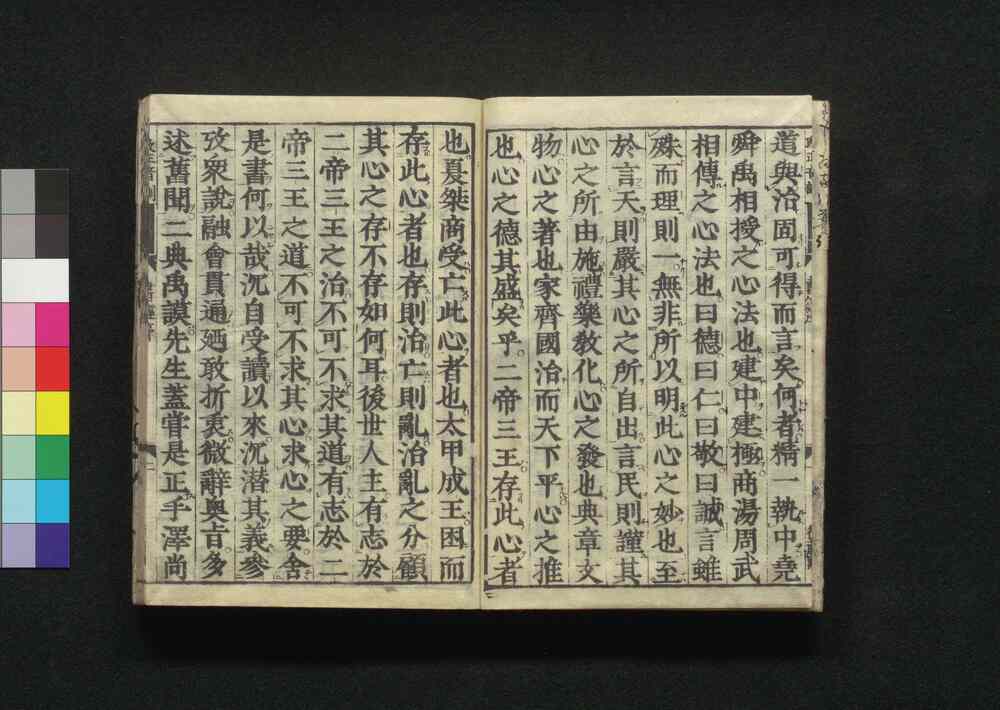 道與治固可得而言矣何者精一執中堯
舜禹相授之心法也建中建極商湯周武
相傳之心法也曰德曰仁曰敬曰誠言雖
殊而理則一無非所以明此心之妙也至
於言天則嚴其心之所自出言民則謹其
心之所由施禮樂教化心之發也典章文
物心之著也家齊國治而天下平心之推
也心之德其盛矣乎二帝三王存此心者
也夏桀商受亡此心者也太甲成王困而
存此心者也存則治亡則亂治亂之分顧
其心之存不存如何耳後世人主有志於
二帝三王之治不可不求其道有志於二
帝三王之道不可不求其心求心之要舍
是書何以哉沉自受讀以來沉潛其義參
攷衆說融會貫通廼敢折衷微辭奧旨多
述舊聞二典禹謨先生蓋嘗是正手澤尚